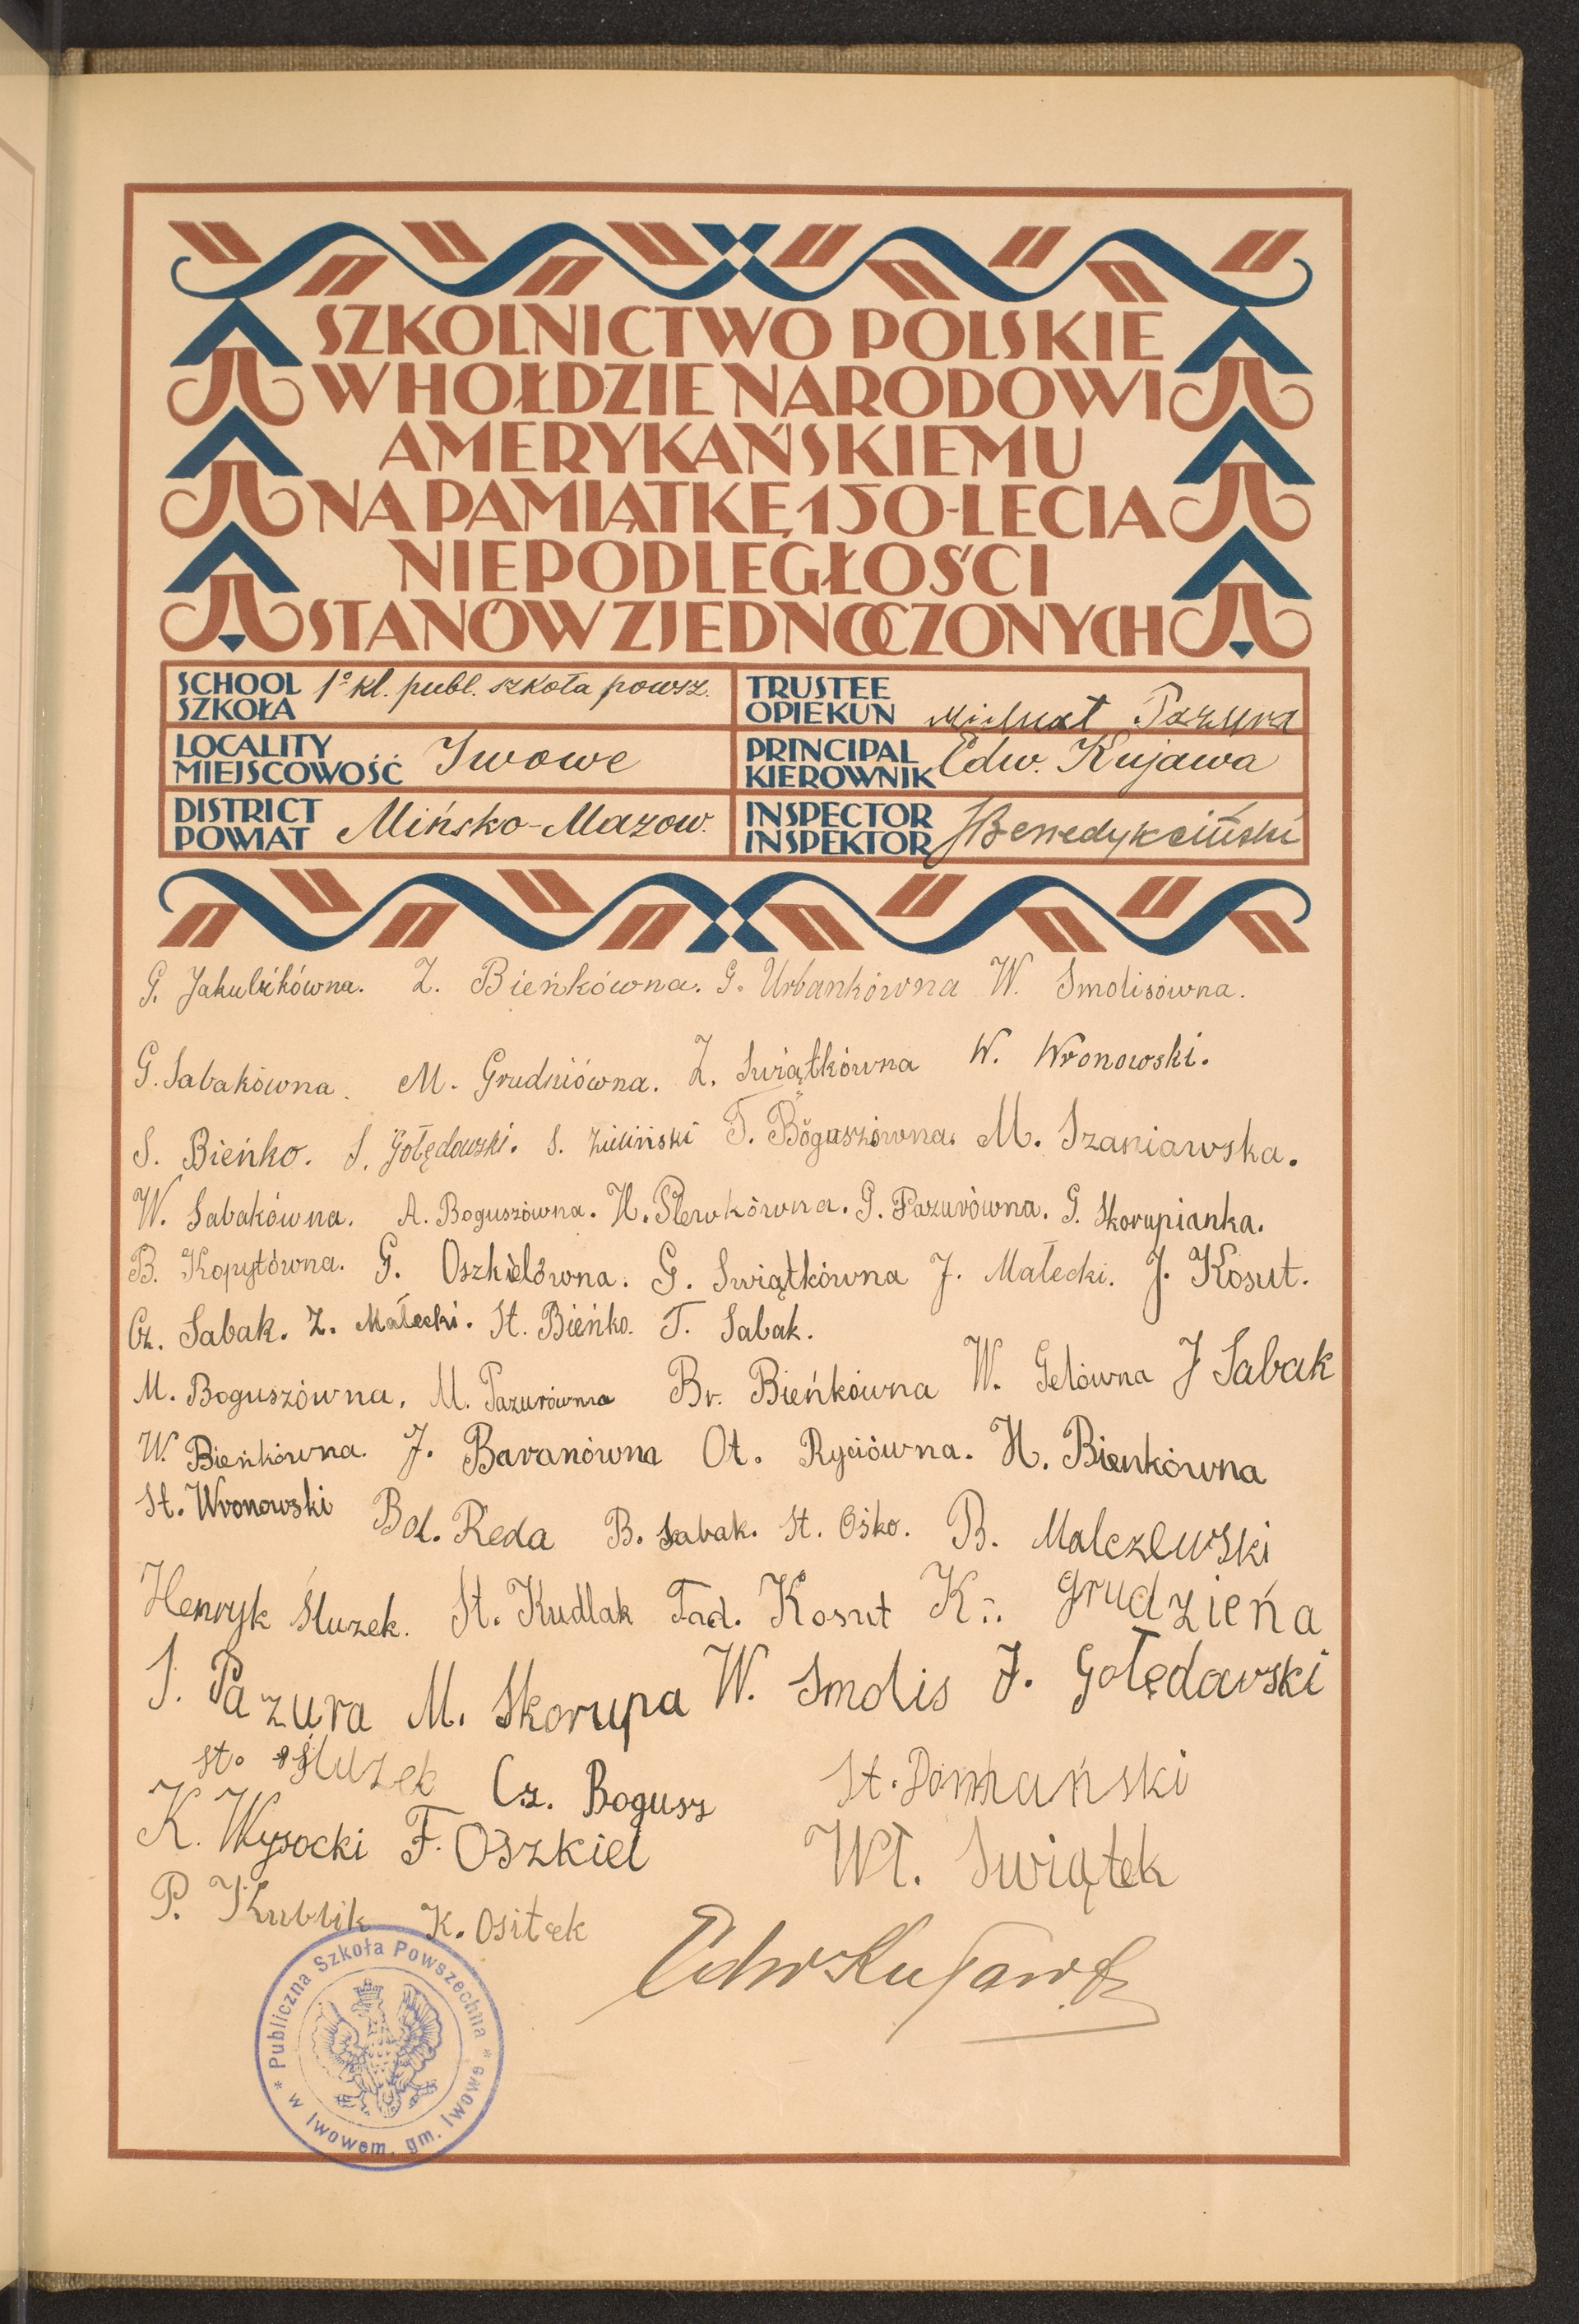 SZKOLNICTWO POLSKIE
W HOŁDZIE NARODOWI
AMERYKAŃSKIEMU
NA PAMIĄTKĘ 150-LECIA
NIEPODLEGŁOŚCI
STANÓW ZJEDNOCZONYCH
SCHOOL SZKOŁA 1º kl. publ. szkoła powsz.
TRUSTEE OPIEKUN Michał Pazura
LOCALITY MIEJSCOWOŚĆ Iwowe
PRINCIPAL KIEROWNIK Edw. Kujawa
DISTRICT POWIAT Mińsko-Mazow.
INSPECTOR INSPEKTOR JBenedykciński
G. Jakubikówna. Z. Bieńkówna. G. Urbankówna W. Smolisówna.
G. Sabakówna. M. Grudniówna. Z. Swiątkówna W. Wronowski.
S. Bieńko. S. Gołędowski. S. Zieliński T. Boguszówna. M. Szaniawska.
W. Sabakówna. A. Boguszówna. H. Plewkówna. G. Pazurówna. G. Skorupianka.
B. Kopytówna. G. Oszkielówna. G. Swiątkówna J. Małecki. J. Kosut.
Cz. Sabak. Z. Małecki. St. Bieńko. T. Sabak.
M. Boguszówna. M. Pazurówna Br. Bieńkówna W. Gelówna J Sabak
W. Bieńkówna. J. Baranówna Ot. Ryciówna. H. Bienkówna
St. Wronowski Bol. Reda B. Sabak. St. Ośko. B. Malczewski
Henryk Śluzek. St. Kudlak Tad. Kosut K. Grudzieńa
S. Pazura M. Skorupa W. Smolis J. Gołędowski
st. Śluzek Cz. Bogusz St. Domański
K. Wysocki F. Oszkiel Wł. Swiątek
P. Kublik K. Ositek
Edw Kujawa
* Publiczna Szkoła Powszechna * w Iwowem, gm. Iwowe